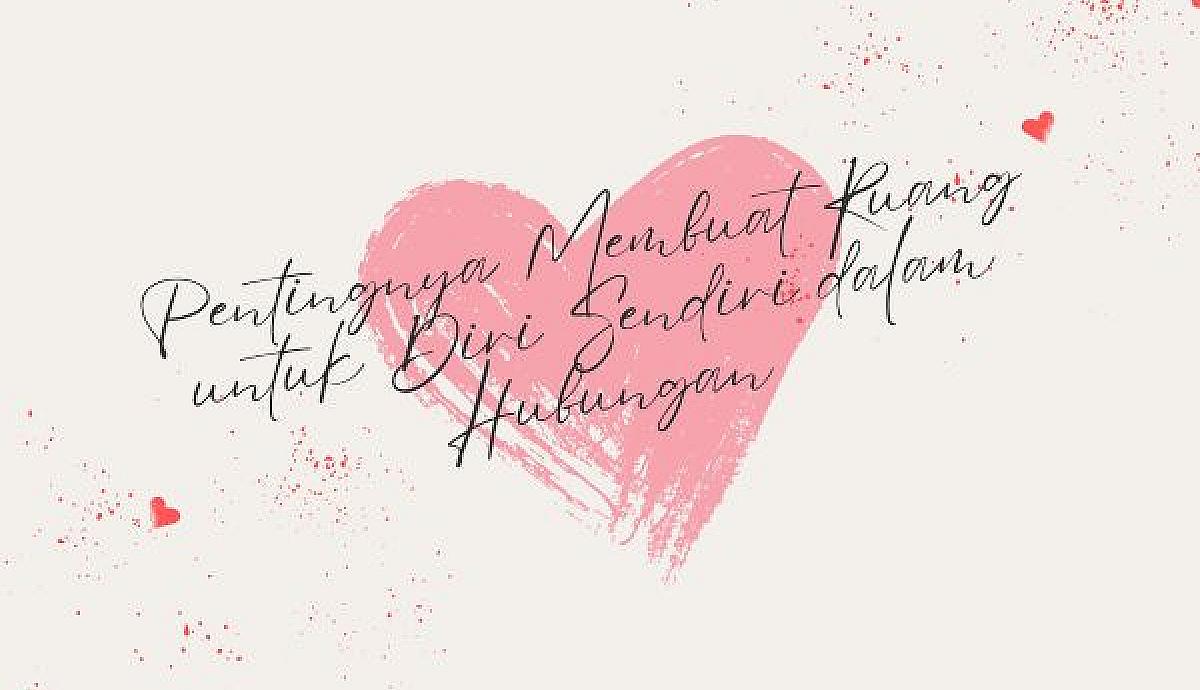 Pentingnya Membuat Ruang
untuk Diri Sendiri dalam
Hubungan